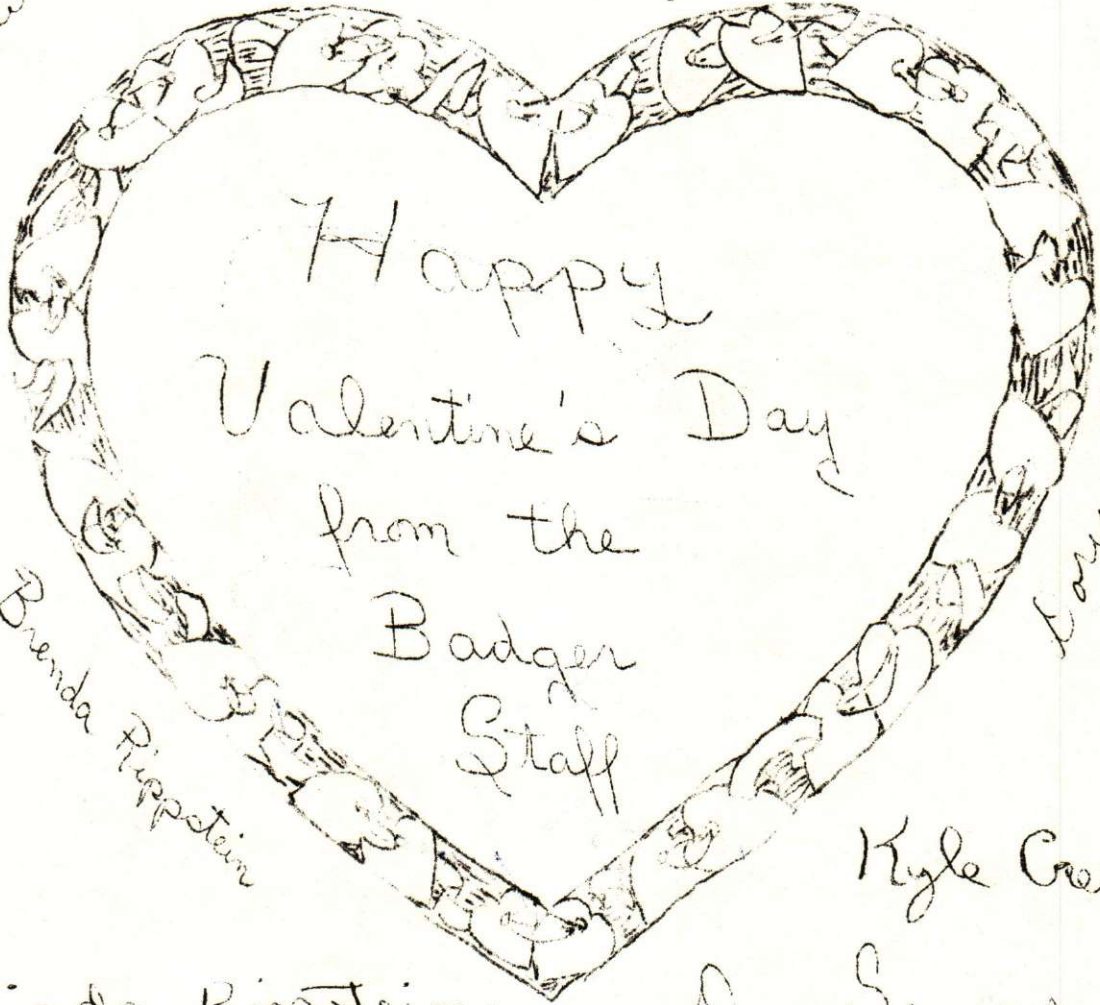 Happy
Valentine's Day
from the
Badger
Staff
Brenda Rippstein
Kyle
Rippstein